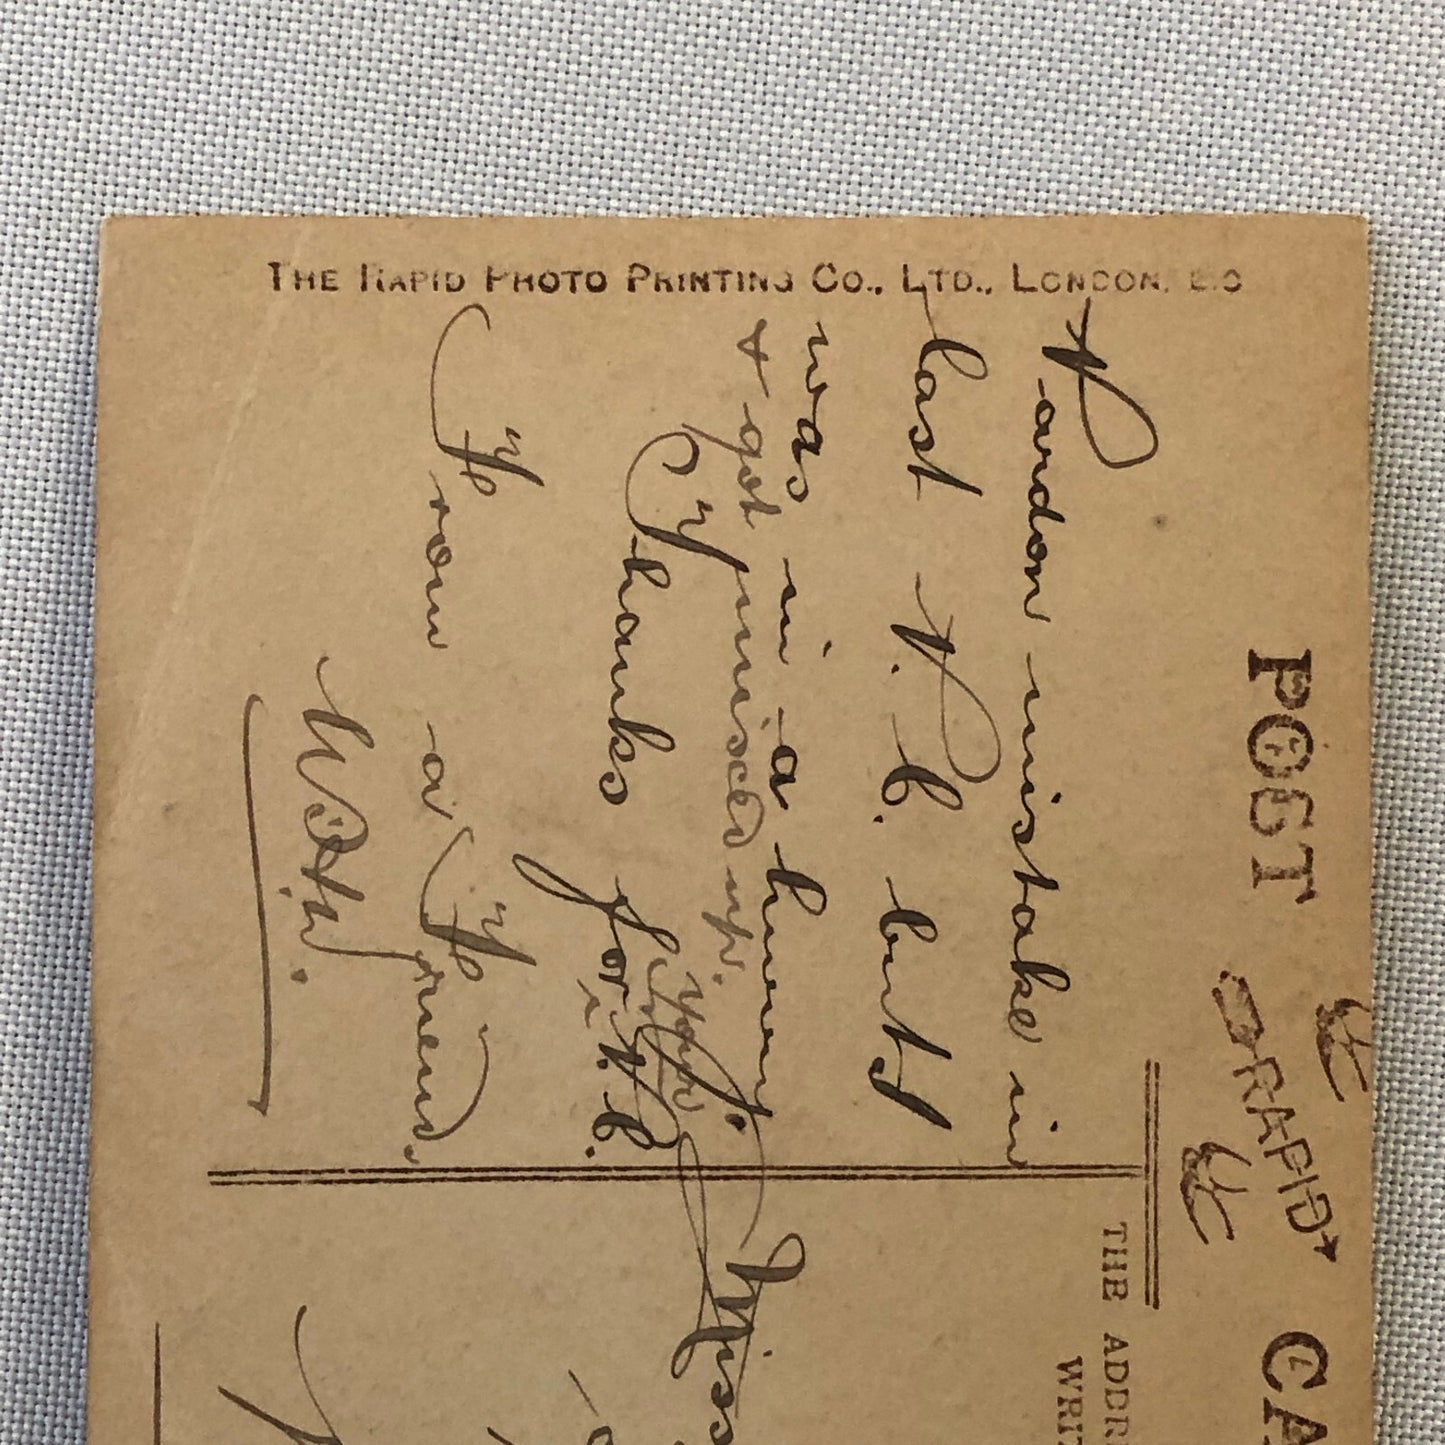 THE RAPID PHOTO PRINTING CO., LTD., LONDON, E.C
POST CA
RAPID
THE ADDR
WRIT
Pardon mistake in
last P.C. but I
was in a hurry
& got mixed up.
Thanks for P.C.
From a Friend.
Miss